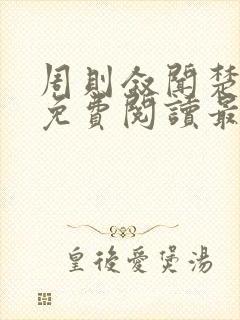 周則敘聞楚
免費閱讀最
皇後愛煲湯